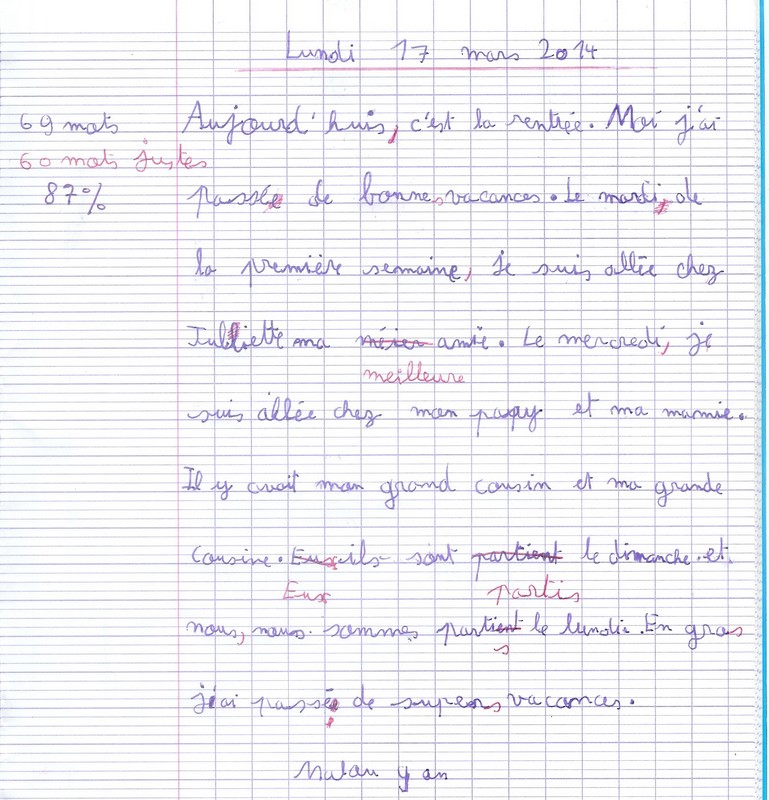 Lundi 17 mars 2014
69 mots Aujourd'huis, c'est la rentrée. Moi j'ai
60 mots justes
87% passée de bonnes vacances. Le mardi, de
la première semaine, je suis allée chez
Julliette ma amie. Le mercredi, je
meilleure
suis allée chez mon papy et ma mamie.
Il y avait mon grand cousin et ma grande
cousine. Eux ils sont partient le dimanche et
Eux partis
nous, nous sommes partient le lundi. En gros
s
j'ai passée de supers vacances.